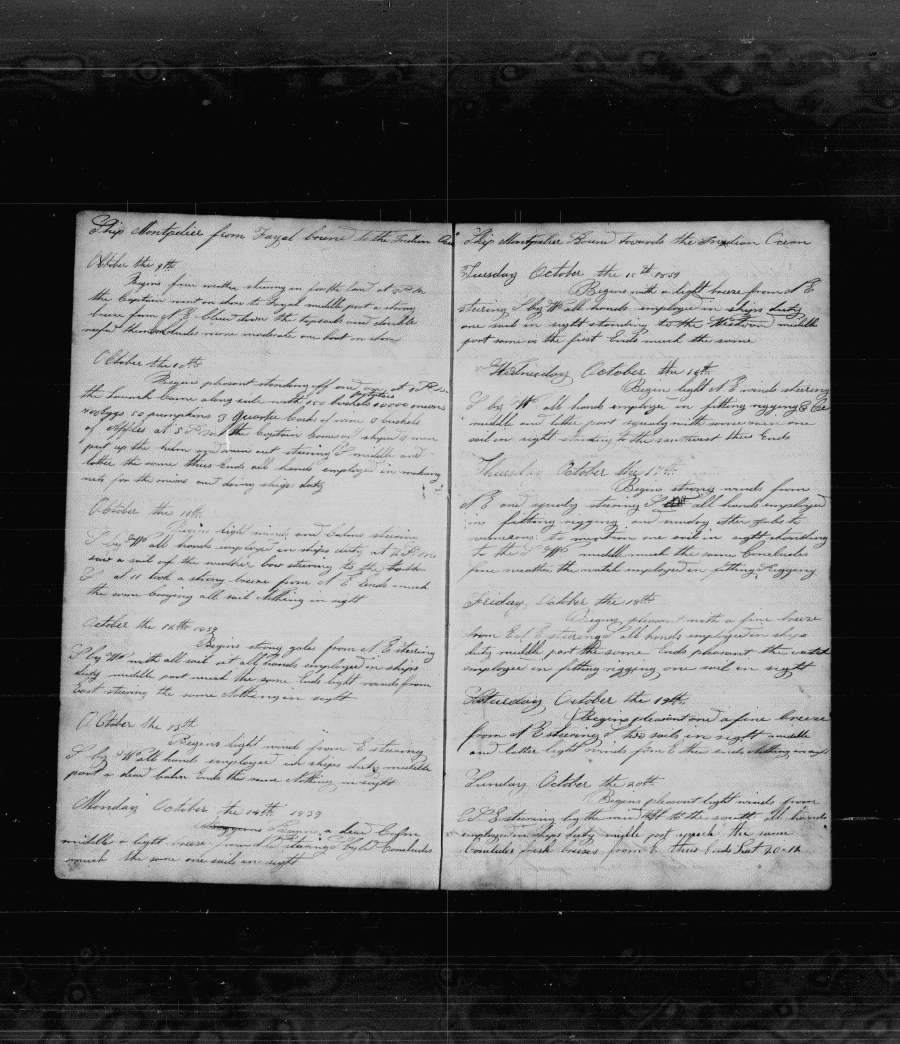 Ship Montpelier from Fayal bound to the Indian Oce
October the 9th
Begins fine weather steering on for the land at 5 P M
the Captain went on shore to Fayal middle part a strong
breeze from N E blew down the topsails and double
reefed them concludes more moderate one boat on shore
October the 10th
Begins pleasant standing off and on at 1 P M
potatoes
the Launch came along side with 150 bushels 10000 onions
400 Eggs 50 pumpkins 3 Quarter Casks of wine 3 bushels
of Apples at 5 P M the Captain Came on shiped 3 men
put up the helm and run out steering S middle and
latter the same thus Ends all hands employed in making
nets for the onions and doing ships duty
October the 11th
Begins light winds and Calms steering
S by W all hands employed in ships duty at 2 P M
saw a sail off the weather bow steering to the
E at 11 took a strong breeze from N E Ends much
the same carrying all sail Nothing in sight
October the 12th 1839
Begins strong gales from N E steering
S by W with all sail set all hands employed in ships
duty middle part much the same Ends light winds from
East steering the same Nothing in sight
October the 13th
Begins light wind from E steering
S by W all hands employed in ships duty middle
part a dead Calm Ends the same Nothing in sight
Monday October the 14th 1839
Begins a dead Calm
middle a light breeze from N E steering S by W Concludes
much the same one sail in sight
Ship Montpelier Bound towards the Indian Ocean
Tuesday October the 15th 1839
Begins with a light breeze from N E
steering S by W all hands employed in ships duty
one sail in sight standing to the Westward middle
part same as the first Ends much the same
Wednesday October the 16th
Begin light N E winds steering
S by W all hands employed in fitting rigging &c
middle and later part squaly with some rain one
sail in sight standing to the southwest thus Ends
Thursday October the 17th
Begins strong winds from
N E and squaly staring S all hands employed
in fitting rigging and sunday other jobs to
numerous to mention one sail in sight standing
to the S W middle much the same Concluds
fine weather the watch employed in fitting Rigging
Friday October the 18th
Begins pleasant with a fine breeze
from E N E steering S all hands employed in ships
duty middle part the same Ends pleasant the watch
employed in fitting rigging one sail in sight
Saturday October the 19th
Begins pleasant and a fine breeze
from N E steering S two sails in sight middle
and latter light winds from E thus ends Nothing in sight
Sunday October the 20th
Begins pleasant light winds from
E S E steering by the wind to the south all hands
employed in ships duty middle part the same
Concludes fresh breezes from E thus Ends Lat 20-12